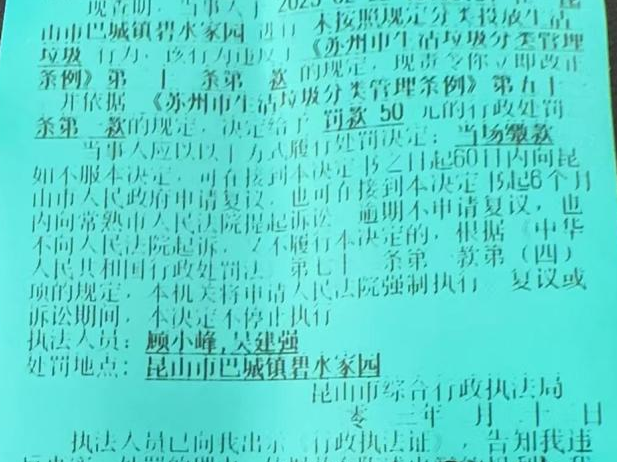 现查明，当事人于 2025
山市巴城镇碧水家园 进行 未按照规定分类投放生活
垃圾 行为，该行为违反了 《苏州市生活垃圾分类管理
条例》第 十 条第 款 的规定，现责令你立即改正
并依据 《苏州市生活垃圾分类管理条例》第五十
条第 款的规定，决定给予 罚款 50 元的行政处罚
当事人应以以下方式履行处罚决定：当场缴款
如不服本决定，可在接到本决定书之日起60日内向昆
山市人民政府申请复议，也可在接到本决定书起6个月
内向常熟市人民法院提起诉讼 逾期不申请复议，也
不向人民法院起诉，又不履行本决定的，根据《中华
人民共和国行政处罚法 第七十 条第 款第（四）
项的规定，本机关将申请人民法院强制执行 复议或
诉讼期间，本决定不停止执行
执法人员：顾小峰,吴建强
处罚地点：昆山市巴城镇碧水家园
昆山市综合行政执法局
零 年 月 十 日
执法人员已向我出示《行政执法证》，告知我违